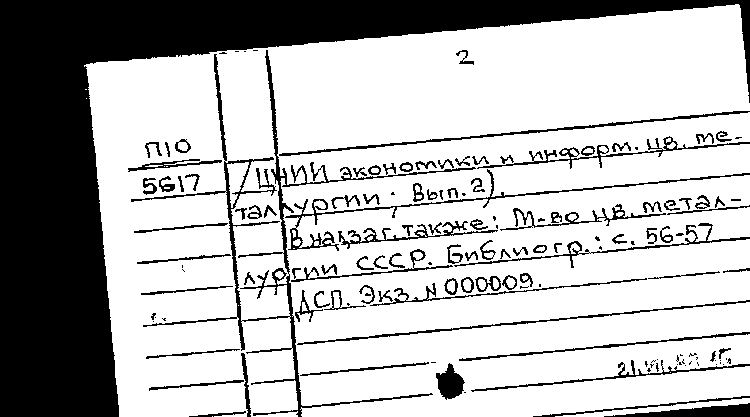 2
П10
5617
/ЦНИИ экономики и информ. цв. ме-
таллургии; Вып. 2).
В надзаг. также: М-во цв. метал-
лургии СССР. Библиогр.: с. 56-57
ДСП. Экз. N 000009.
21.VII.